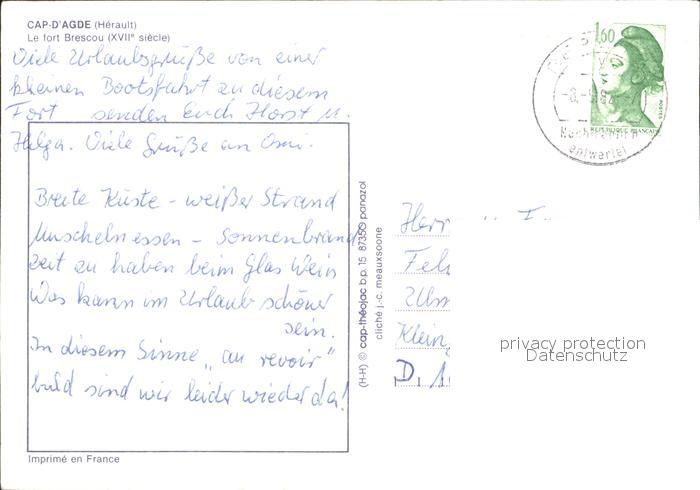 CAP-D'AGDE (Hérault)
Le fort Brescou (XVIIᵉ siècle)
Viele Urlaubsgrüße von einer
kleinen Bootsfahrt zu diesem
Fort senden Euch Horst u.
Helga. Viele Grüße an Omi.
Breite Küste - weißer Strand
Muschelnessen - Sonnenbrand
Zeit zu haben beim Glas Wein
Was kann im Urlaub schöner
sein.
In diesem Sinne "au revoir"
bald sind wir leider wieder da!
Imprimé en France
(H-H) © cap-théojac b.p. 15 87350 panazol
cliché j.-c. meauxsoone
1,60
POSTES
REPUBLIQUE FRANÇAISE
entwertet
Herr
Fel
Ulm
Klein
D. 1
privacy protection
Datenschutz